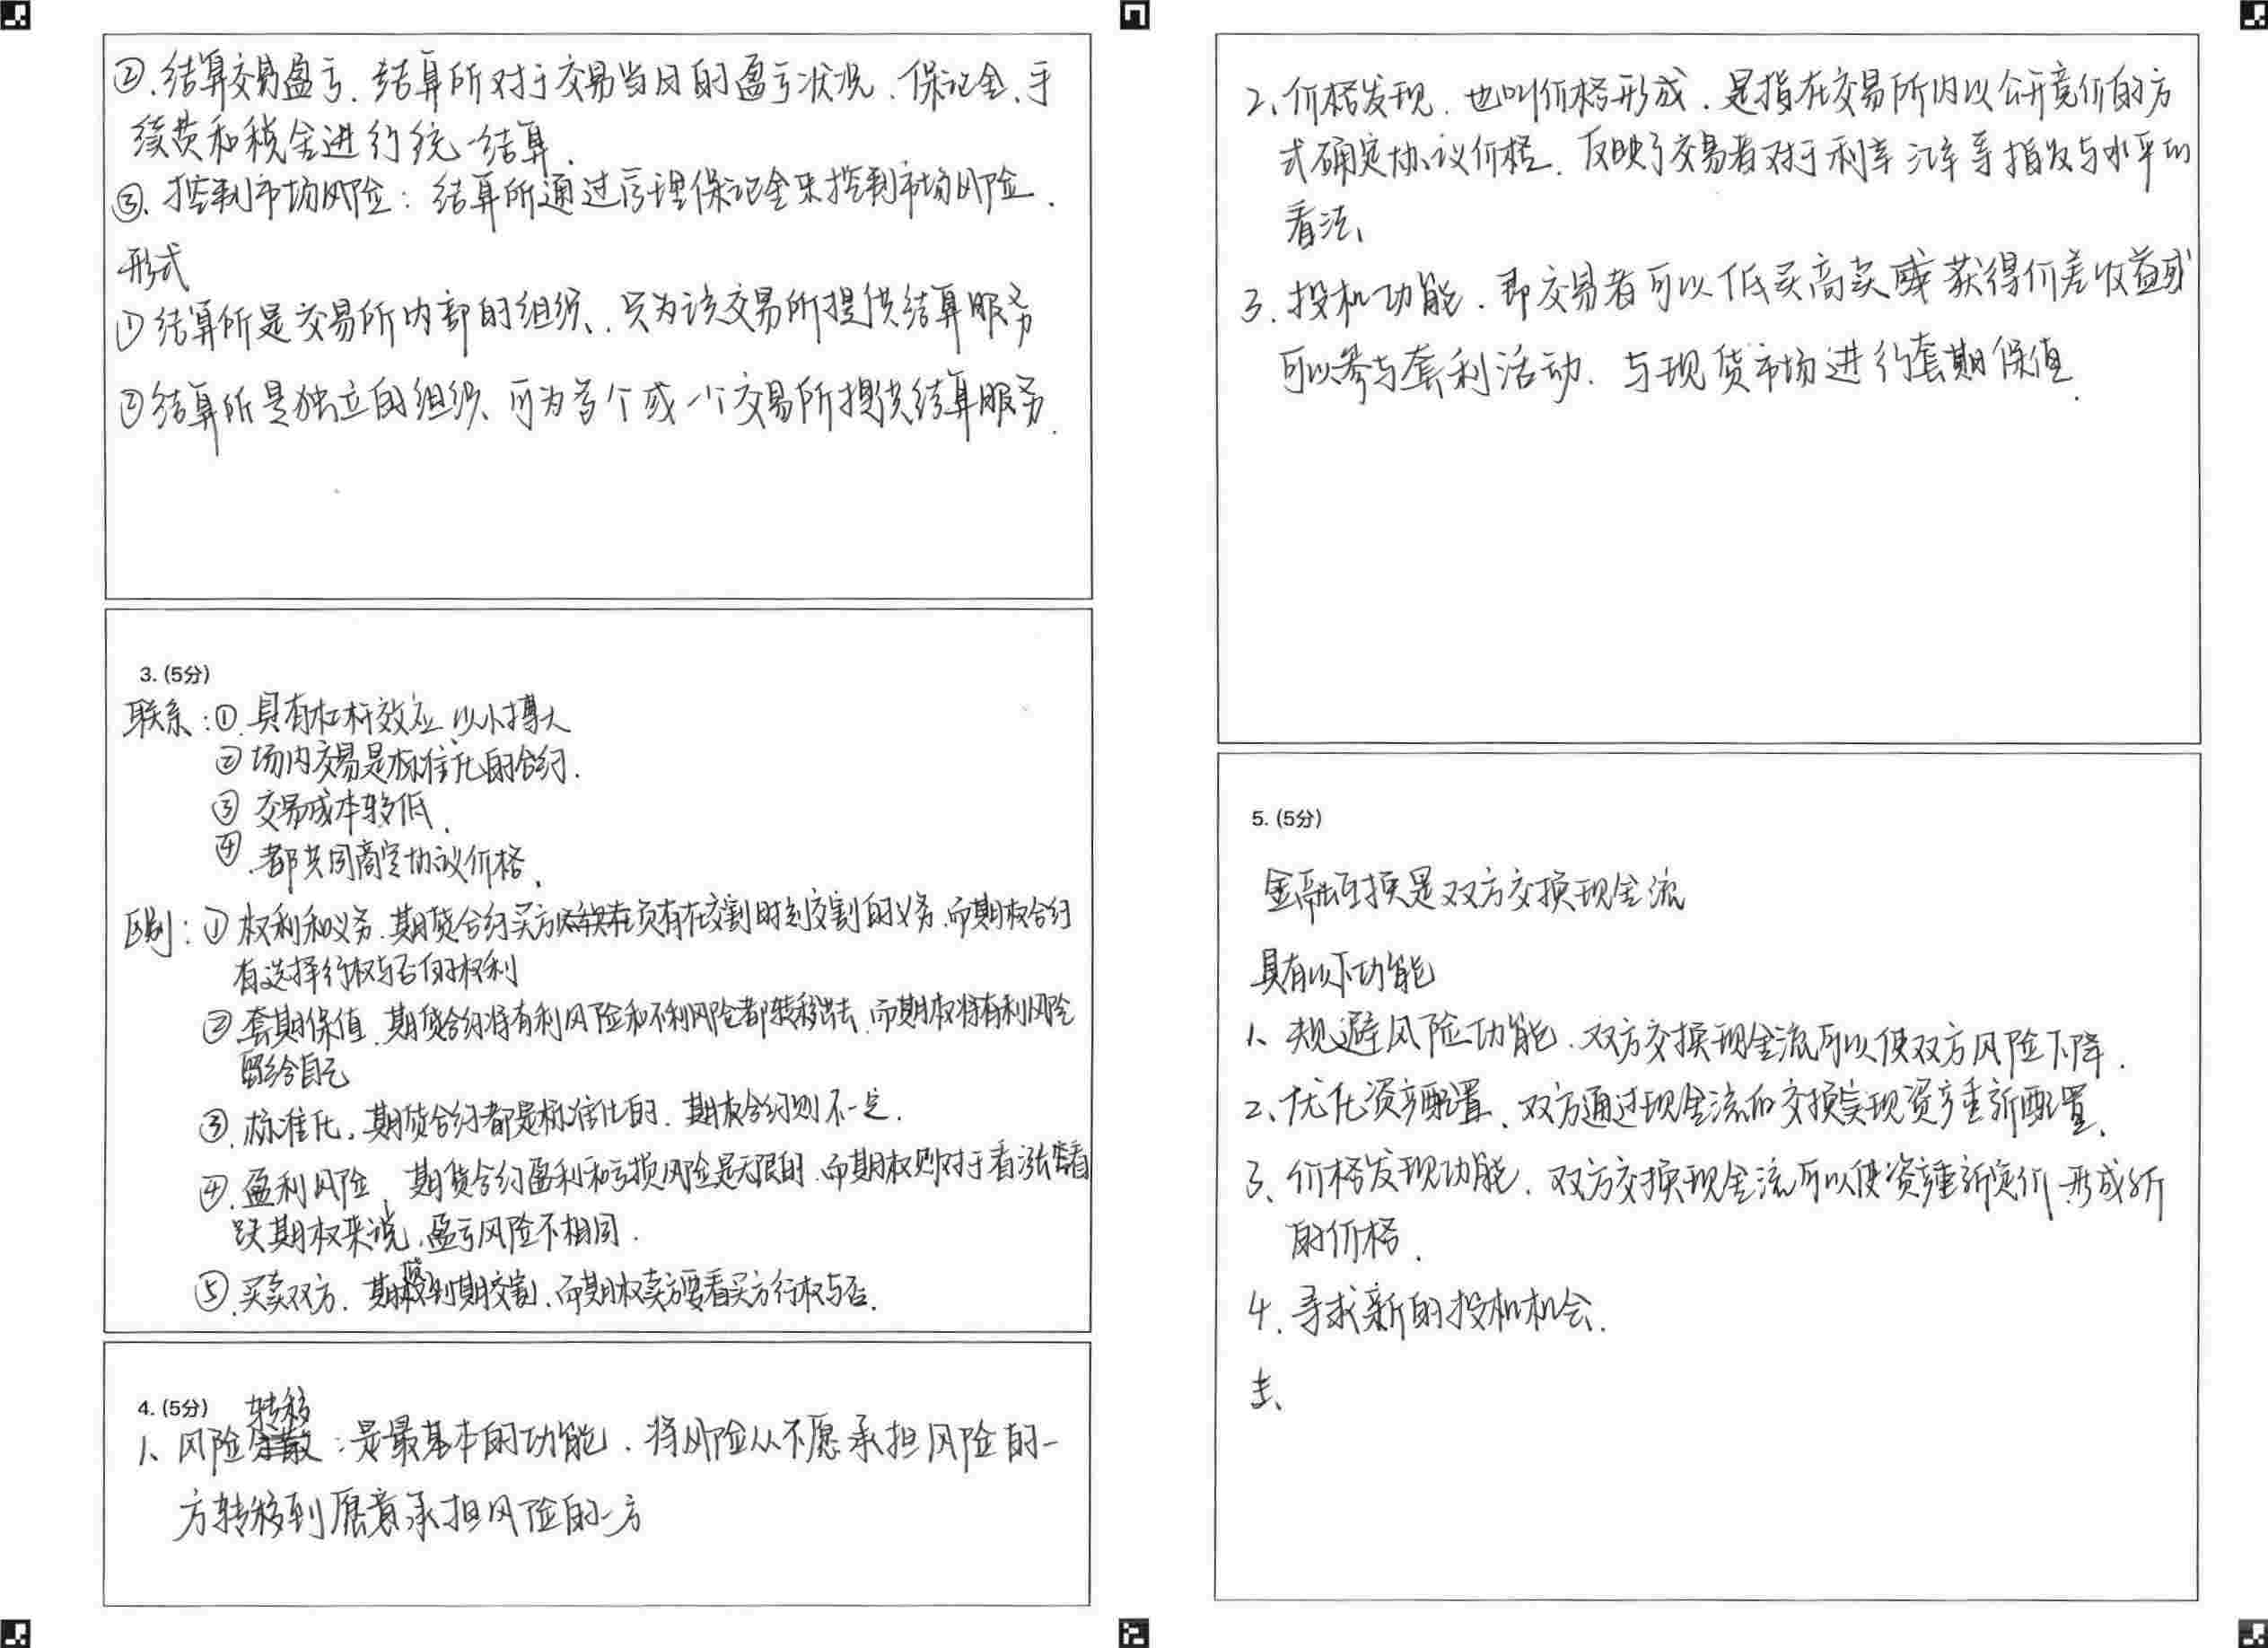 ②、结算交易盈亏、结算所对于交易当日的盈亏状况、保证金、手
续费和税金进行统一结算.
③、控制市场风险：结算所通过管理保证金来控制市场风险.
形式
①结算所是交易所内部的组织、只为该交易所提供结算服务
②结算所是独立的组织、可为多个或一个交易所提供结算服务.
3. (5分)
联系：①.具有杠杆效应、以小搏大
②场内交易是标准化的合约.
③交易成本较低.
④.都共同商定协议价格.
区别：①权利和义务.期货合约买方负有在交割时刻交割的义务.而期权合约
有选择行权与否的权利
②套期保值.期货合约将有利风险和不利风险都转移出去.而期权将有利风险
留给自己
③.标准化。期货合约都是标准化的.期权合约则不一定.
④.盈利风险、期货合约盈利和亏损风险是无限的.而期权则对于看涨看
跌期权来说、盈亏风险不相同.
⑤.买卖双方.期货到期交割、而期权卖方要看买方行权与否.
4. (5分)
1、风险转移：是最基本的功能.将风险从不愿承担风险的一
方转移到愿意承担风险的一方
2、价格发现.也叫价格形成.是指在交易所内以公开竞价的方
式确定协议价格.反映了交易者对于利率汇率等指数与水平的
看法、
3.投机功能.即交易者可以低买高卖获得价差收益或
可以参与套利活动.与现货市场进行套期保值.
5. (5分)
金融互换是双方交换现金流
具有以下功能
1、规避风险功能.双方交换现金流可以使双方风险下降.
2、优化资产配置、双方通过现金流的交换实现资产重新配置.
3、价格发现功能.双方交换现金流可以使资产重新定价.形成新
的价格.
4.寻求新的投机机会.